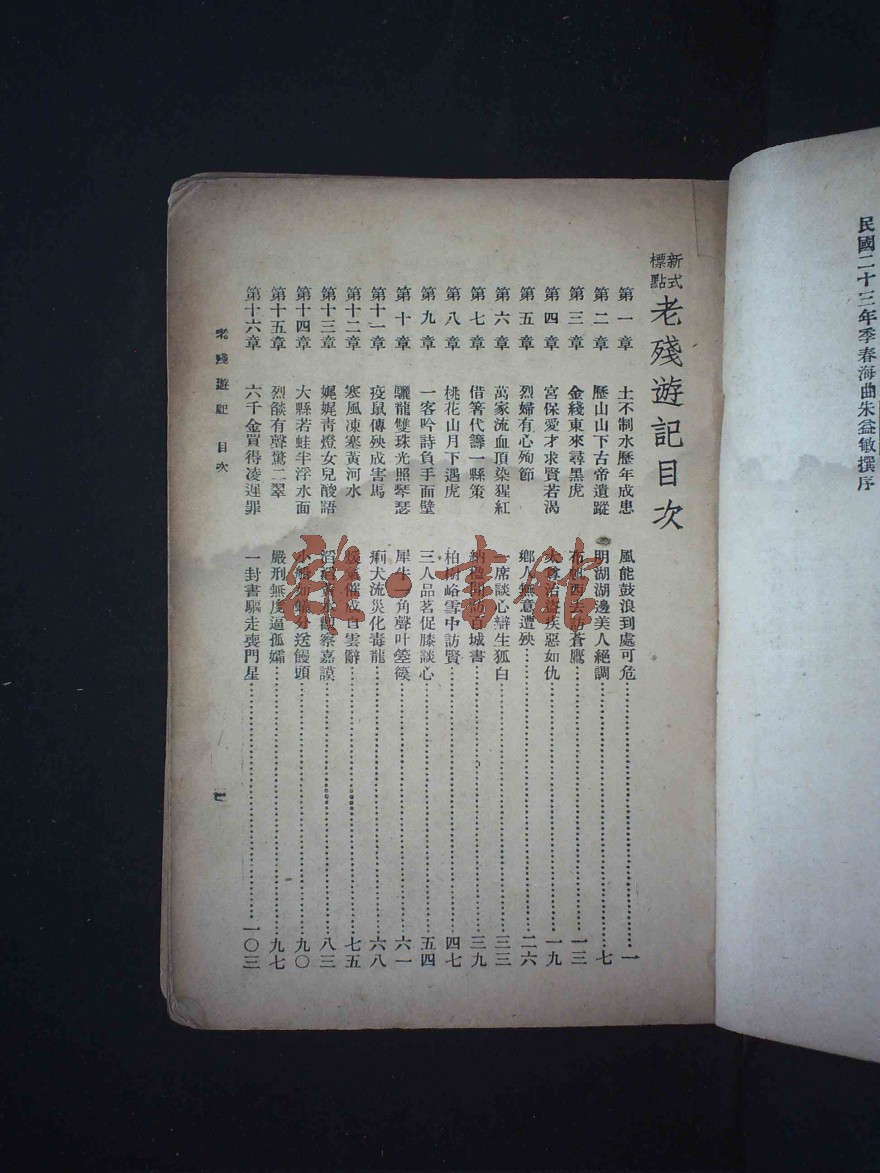 民國二十三年季春海曲朱益敏撰序
新式標點 老殘遊記目次
第一章 土不制水歷年成患 風能鼓浪到處可危 一
第二章 歷山山下古帝遺蹤 明湖湖邊美人絕調 七
第三章 金綫東來尋黑虎 布帆西去訪蒼鷹 一三
第四章 宮保愛才求賢若渴 太尊治盜疾惡如仇 一九
第五章 烈婦有心殉節 鄉人無意遭殃 二六
第六章 萬家流血頂染猩紅 一席談心辯生狐白 三三
第七章 借箸代籌一縣策 納楹閒訪百城書 三九
第八章 桃花山月下遇虎 柏樹峪雪中訪賢 四七
第九章 一客吟詩負手面壁 三人品茗促膝談心 五四
第十章 驪龍雙珠光照琴瑟 犀牛一角聲叶箜篌 六一
第十一章 疫鼠傳殃成害馬 瘈犬流災化毒龍 六八
第十二章 寒風凍塞黃河水 暖氣催成白雪辭 七五
第十三章 娓娓青燈女兒酸語 滔滔黃水觀察嘉謨 八三
第十四章 大縣若蛙半浮水面 小船如蟻分送饅頭 九〇
第十五章 烈燄有聲驚二翠 嚴刑無度逼孤孀 九七
第十六章 六千金買得凌遲罪 一封書驅走喪門星 一〇三
老殘遊記 目次
一
雅·書館